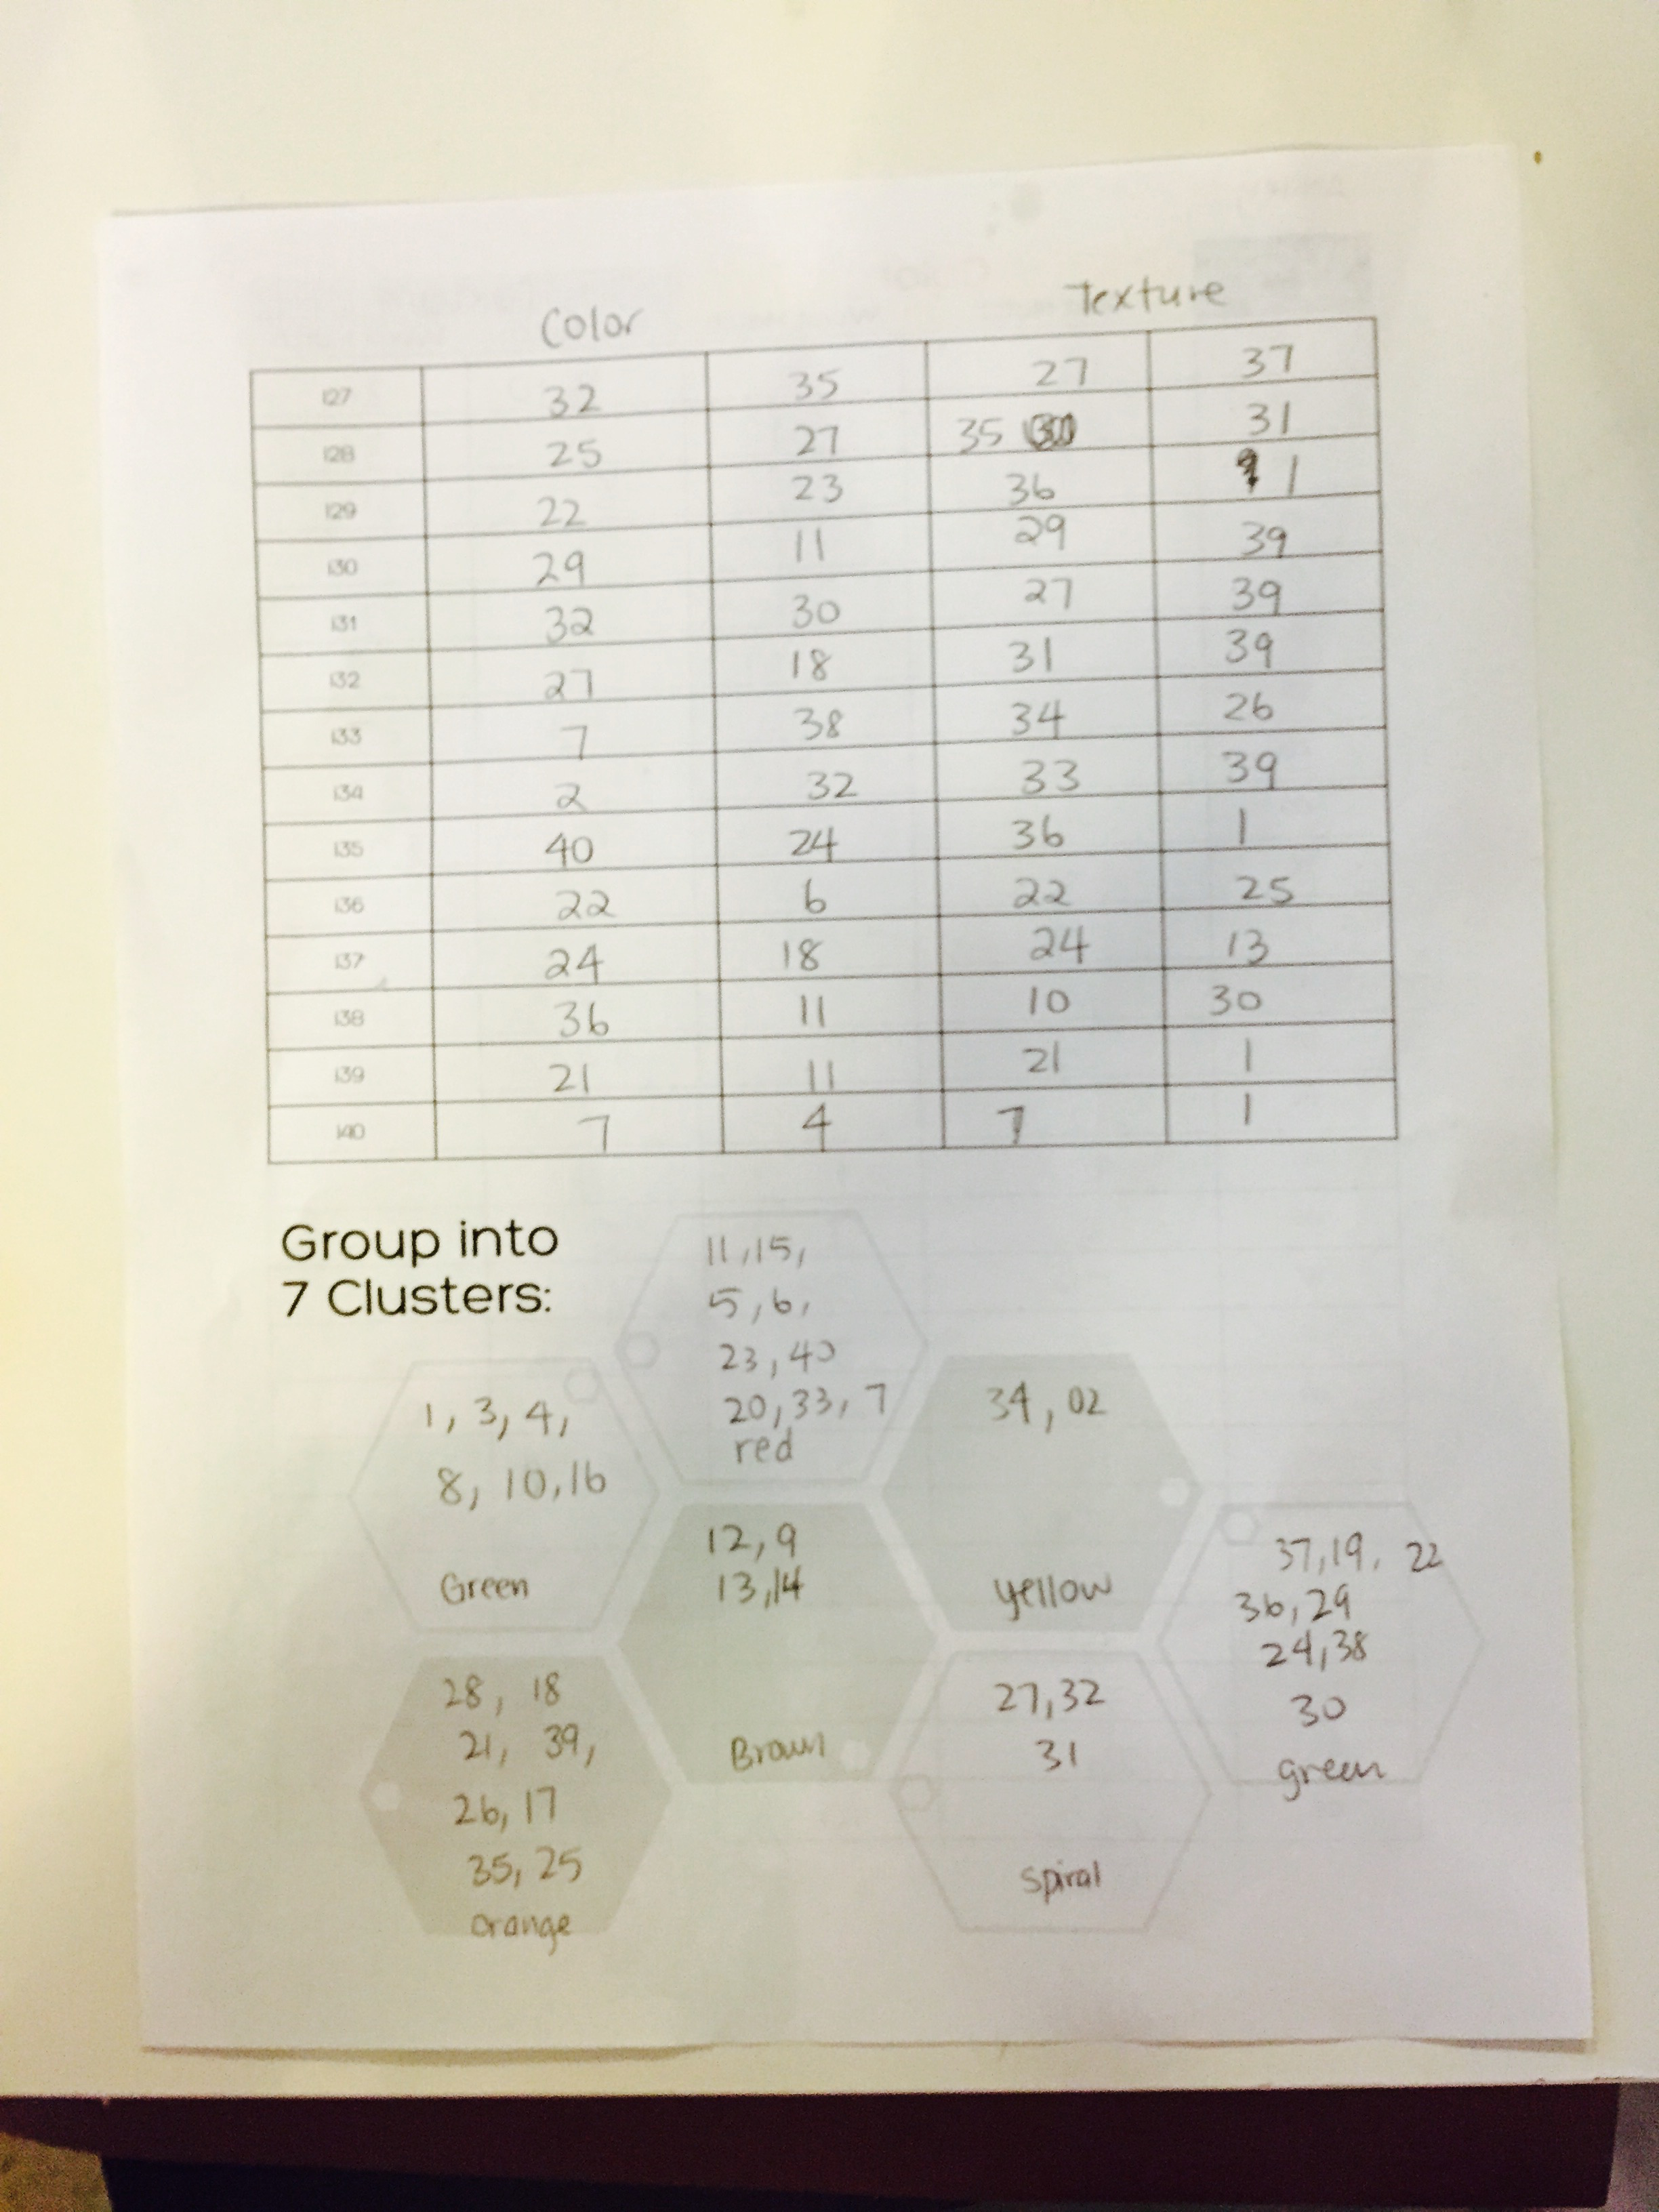 Color Texture
127 32 35 27 37
128 25 27 35 31
129 22 23 36 1
130 29 11 29 39
131 32 30 27 39
132 27 18 31 39
133 7 38 34 26
134 2 32 33 39
135 40 24 36 1
136 22 6 22 25
137 24 18 24 13
138 36 11 10 30
139 21 11 21 1
140 7 4 7 1
Group into
7 Clusters:
11, 15,
5, 6,
23, 40
20, 33, 7
red
1, 3, 4,
8, 10, 16
Green
34, 02
yellow
12, 9
13, 14
Brown
37, 19, 22
36, 29
24, 38
30
green
28, 18
21, 39,
26, 17
35, 25
orange
27, 32
31
spiral